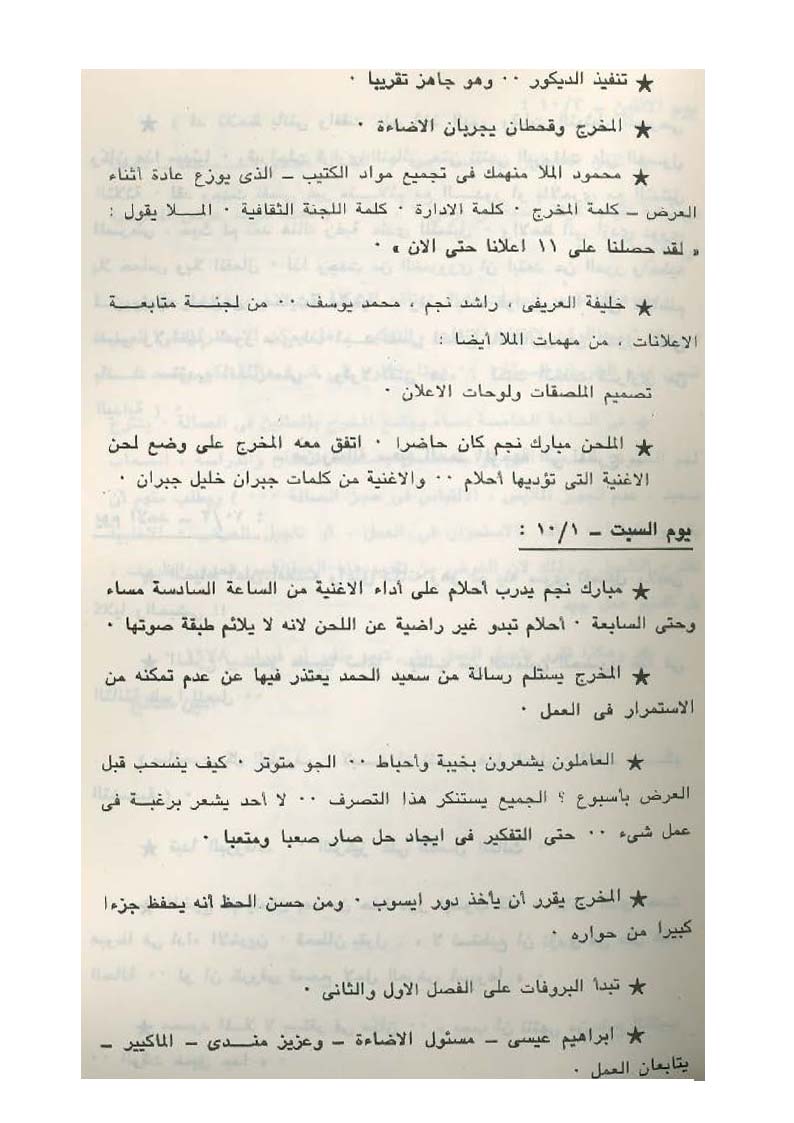 ★ تنفيذ الديكور ٠٠ وهو جاهز تقريبا ٠
★ المخرج وقحطان يجربان الاضاءة ٠
★ محمود الملا منهمك فى تجميع مواد الكتيب ــ الذى يوزع عادة أثناء
العرض ــ كلمة المخرج ٠ كلمة الادارة ٠ كلمة اللجنة الثقافية ٠ المـلا يقول :
« لقد حصلنا على ١١ اعلانا حتى الان » ٠
★ خليفة العريفى ، راشد نجم ، محمد يوسف ٠٠ من لجنـة متابعـة
الاعلانات ، من مهمات الملا أيضا :
تصميم الملصقات ولوحات الاعلان ٠
★ الملحن مبارك نجم كان حاضرا ٠ اتفق معه المخرج على وضع لحن
الاغنية التى تؤديها أحلام ٠٠ والاغنية من كلمات جبران خليل جبران ٠
يوم السبت ــ ١٠/١ :
★ مبارك نجم يدرب أحلام على أداء الاغنية من الساعة السادسة مساء
وحتى السابعة ٠ أحلام تبدو غير راضية عن اللحن لانه لا يلائم طبقة صوتها ٠
★ المخرج يستلم رسالة من سعيد الحمد يعتذر فيها عن عدم تمكنه من
الاستمرار فى العمل ٠
★ العاملون يشعرون بخيبة وأحباط ٠٠ الجو متوتر ٠ كيف ينسحب قبل
العرض بأسبوع ؟ الجميع يستنكر هذا التصرف ٠٠ لا أحد يشعر برغبـة فى
عمل شىء ٠٠ حتى التفكير فى ايجاد حل صار صعبا ومتعبا ٠
★ المخرج يقرر أن يأخذ دور ايسوب ٠ ومن حسن الحظ أنه يحفظ جزءا
كبيرا من حواره ٠
★ تبدأ البروفات على الفصل الاول والثانى ٠
★ ابراهيم عيسى ــ مسئول الاضاءة ــ وعزيز منـدى ــ الماكيير ــ
يتابعان العمل ٠